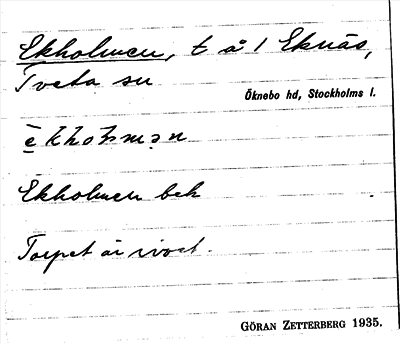 Ekholmen, t å 1 Eknäs,
Tveta sn
Öknebo hd, Stockholms l.
Ekholmen bek
Torpet är rivet.
GÖRAN ZETTERBERG 1935.